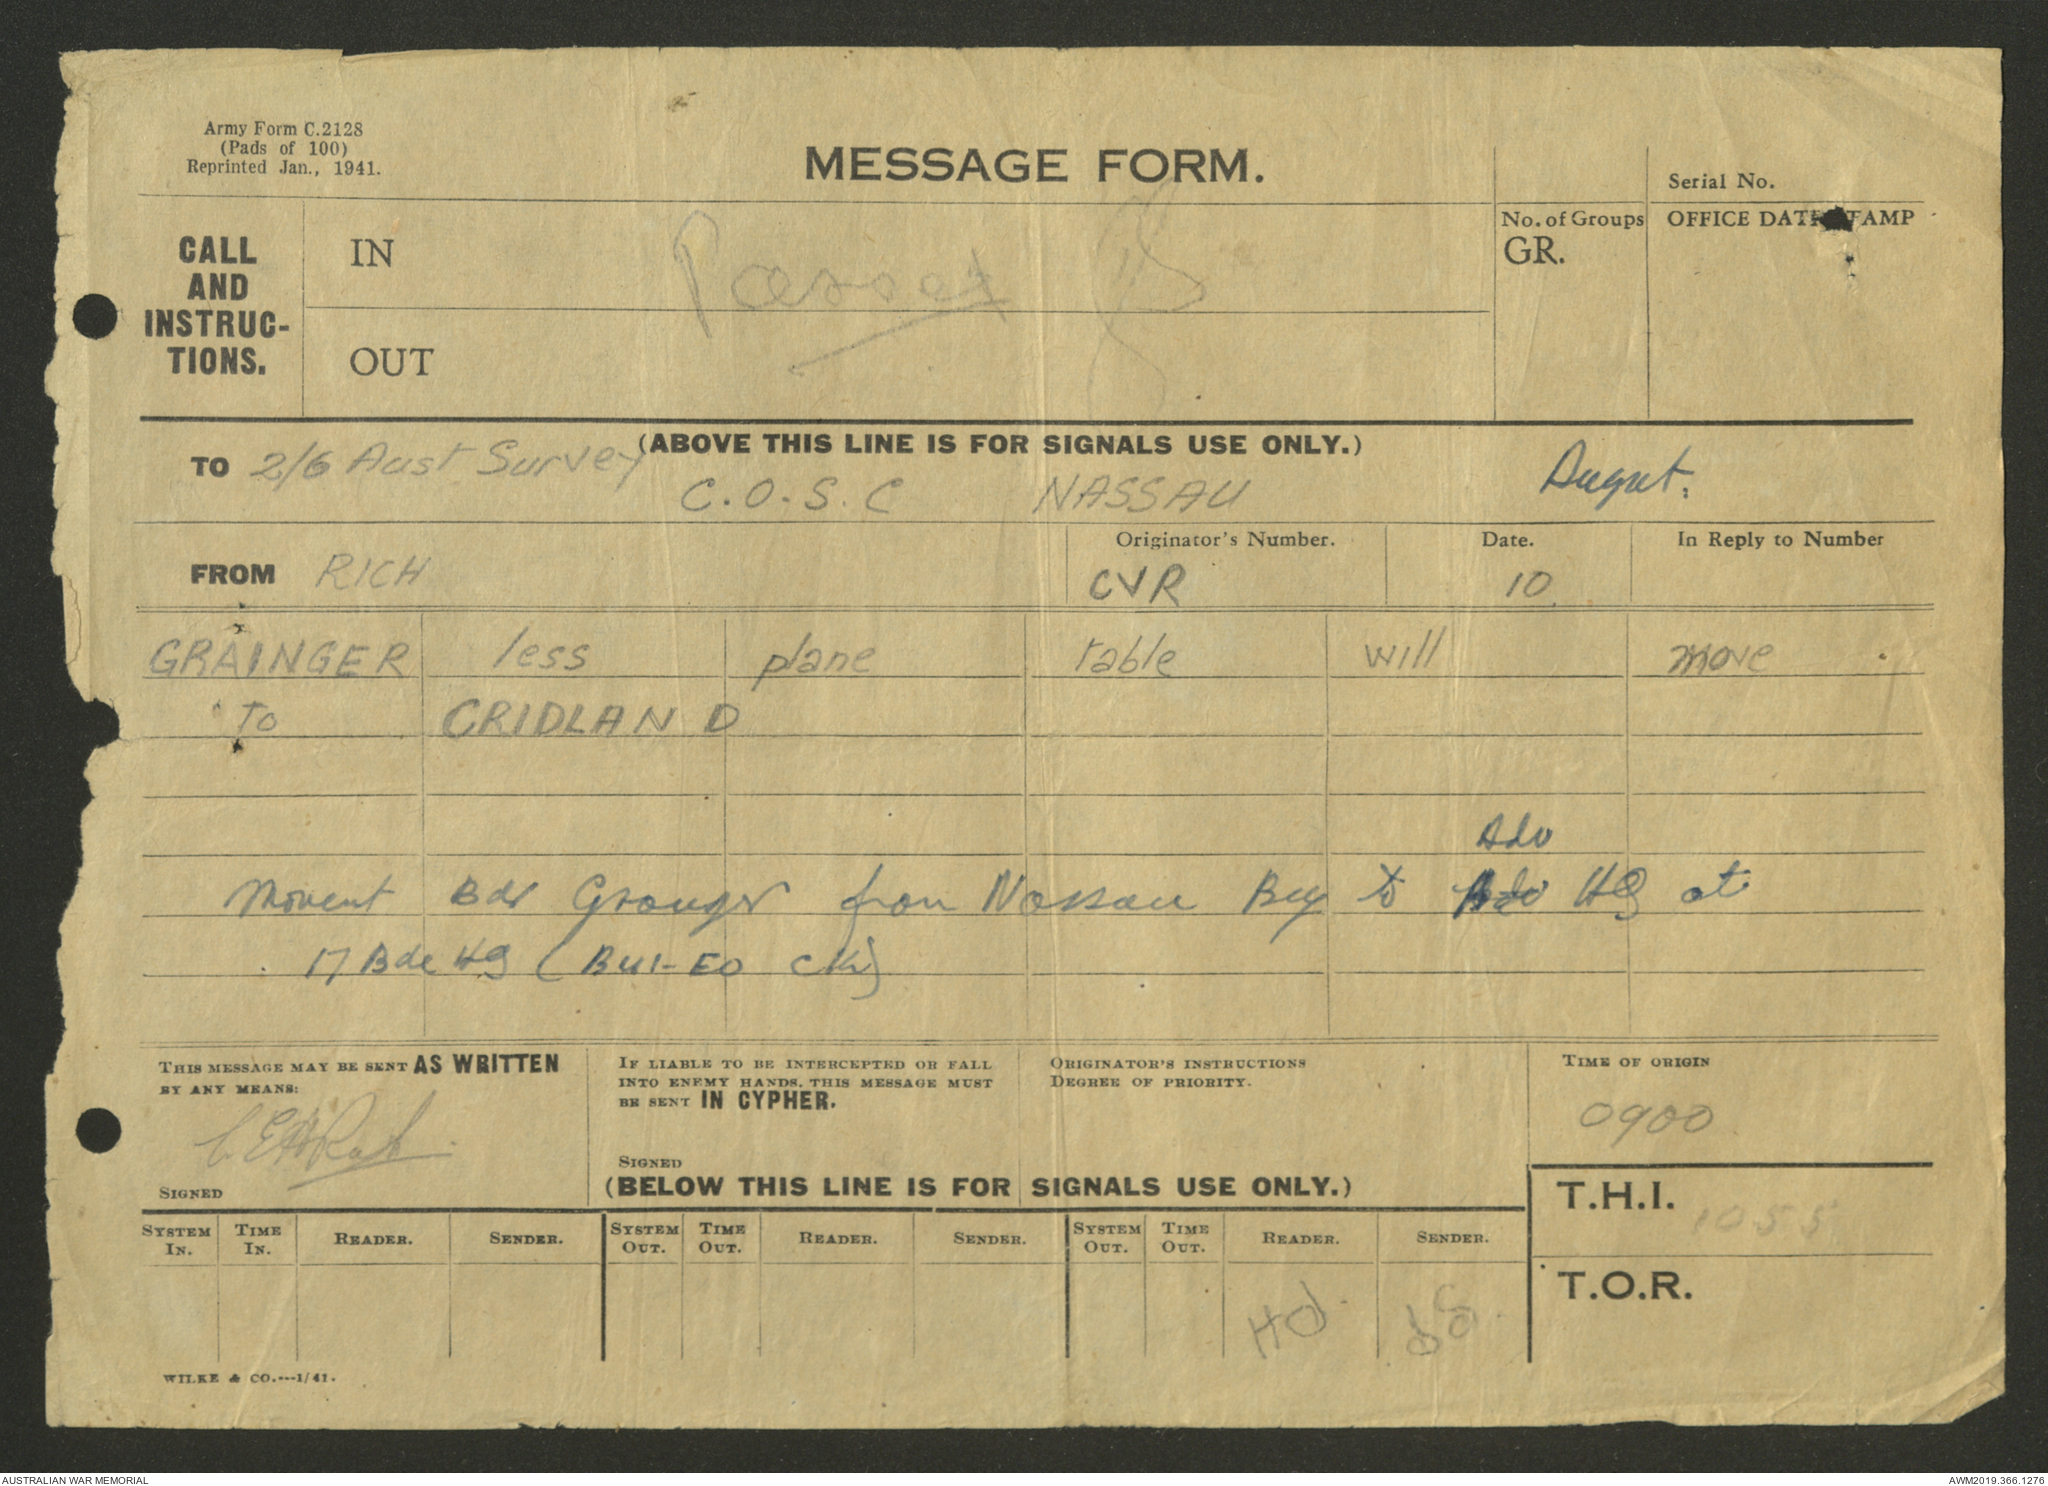 Army Form C.2128
(Pads of 100)
Reprinted Jan., 1941.
MESSAGE FORM.
Serial No.
CALL
AND
INSTRUC-
TIONS.
IN
OUT
No. of Groups
GR.
OFFICE DATE STAMP
(ABOVE THIS LINE IS FOR SIGNALS USE ONLY.)
TO 2/6 Aust Survey
C.O.S.C NASSAU
August.
FROM RICH
Originator's Number.
CVR
Date.
10
In Reply to Number
GRAINGER less plane table will move
To CRIDLAND
Adv
Movent Bdr Granger from Nassau Bay to Adv HQ at
17 Bde HQ (BUI-EO CK)
THIS MESSAGE MAY BE SENT AS WRITTEN
BY ANY MEANS:
SIGNED
IF LIABLE TO BE INTERCEPTED OR FALL
INTO ENEMY HANDS, THIS MESSAGE MUST
BE SENT IN CYPHER.
SIGNED
ORIGINATOR'S INSTRUCTIONS
DEGREE OF PRIORITY.
TIME OF ORIGIN
0900
(BELOW THIS LINE IS FOR SIGNALS USE ONLY.)
T.H.I. 1055
SYSTEM IN. TIME IN. READER. SENDER. SYSTEM OUT. TIME OUT. READER. SENDER. SYSTEM OUT. TIME OUT. READER. SENDER.
T.O.R.
WILKE & CO.---1/41.
AUSTRALIAN WAR MEMORIAL
AWM2019.366.1276